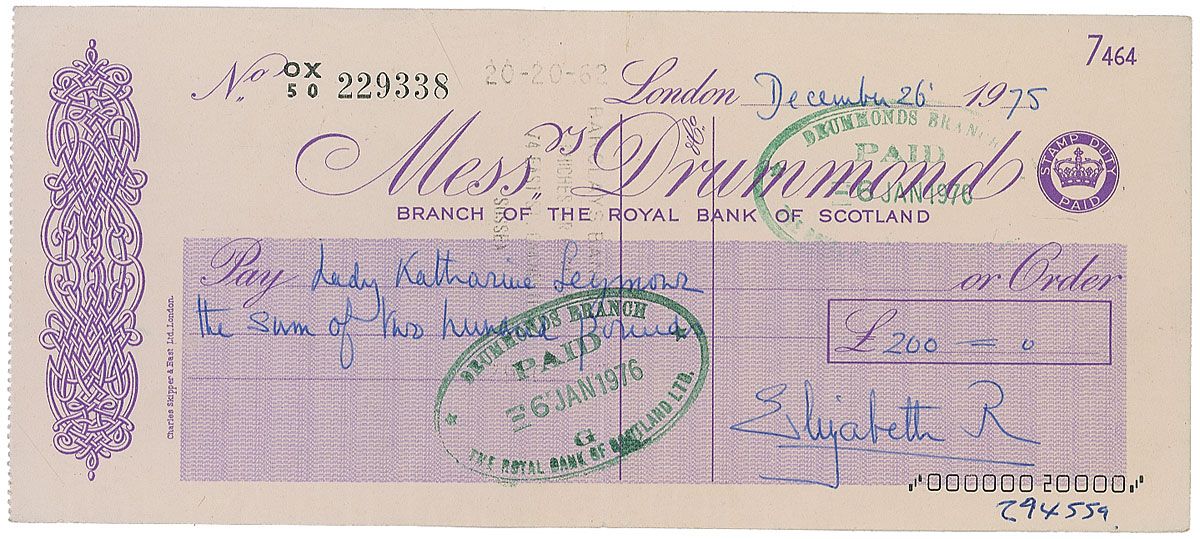 7464
No OX 50 229338
20-20-62
London December 26 1975
Messrs Drummond
BRANCH OF THE ROYAL BANK OF SCOTLAND
STAMP DUTY PAID
DRUMMONDS BRANCH
PAID
6 JAN 1976
Pay Lady Katharine Seymour or Order
the sum of two hundred pounds
£ 200 = 0
DRUMMONDS BRANCH
PAID
6 JAN 1976
G
THE ROYAL BANK OF SCOTLAND LTD.
Elizabeth R
Charles Skipper & East Ltd., London.
⑈000000 20000⑈
294559